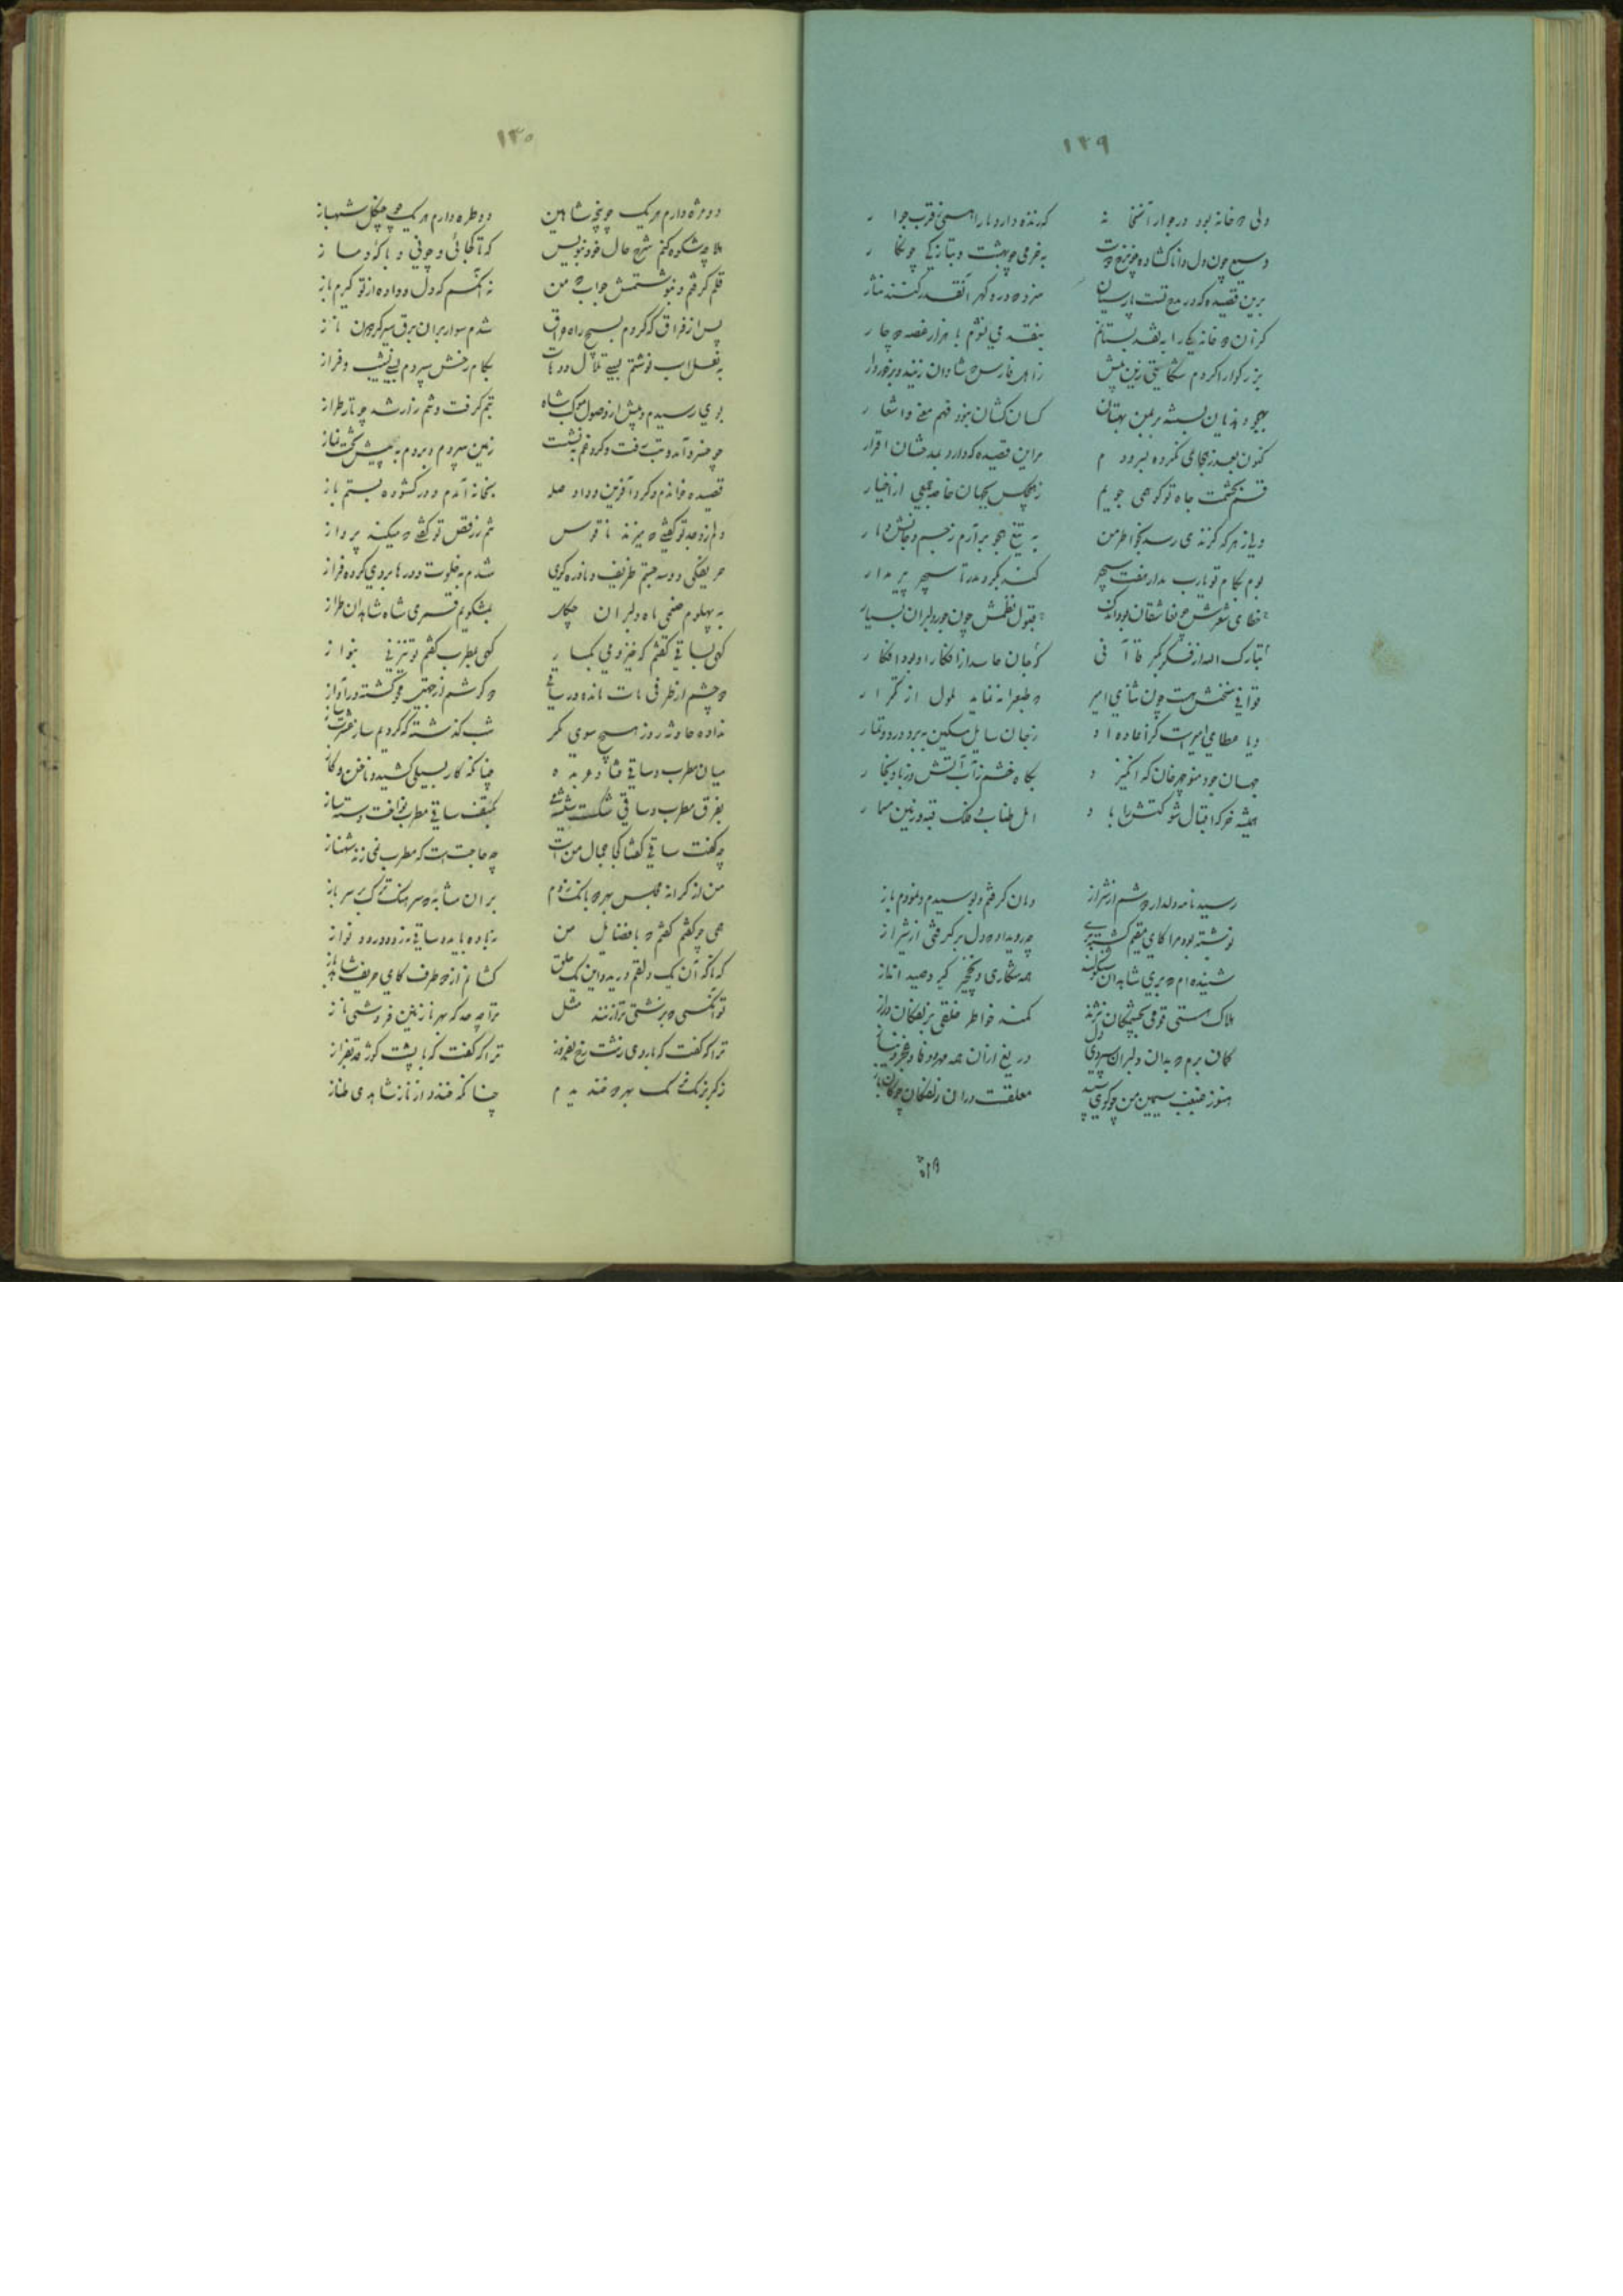 ۱۲۹
ولی دو خانه بود در جوار آنخا نه که زنده دارد ما را همی قرب جوا ر
وسیع چون دل دانا گشاده چون رخ دوست به خرمی چو بهشت و بتازگی چو نگا ر
برین قصیده که در مدح تست پارسیان سزد دو دره گهر آنقدر کنند نثار
گر آن دو خانه یکی را به نقد بستانم بنقد می نشوم با هزار غصه دچا ر
بزرگوارا کردم شکایتی زین پیش ز اهل فارس که شادان زیند و برخوردار
بهجو و هذیان بسته بر بمن بهتان کسان کشان نبود فهم معنی و اشعا ر
کنون بعذر هجای نکرده بسرود م مر این قصیده که دارد به مدحشان اقرار
قسم بحشمت و جاه تو کوهمی جویم ز هیچکس بجهان خاصه جمعی از اخیار
ولی ز هرکه گزندی رسد بخاطر من به تیغ هجو برآرم ز جسم و جانش دمار
بوم بکام تو یارب مدار هفت سپهر کند بگرد مدر تا سپهر پیر مدار
خطای شعرش چون جرم عاشقان اندک قبول نظمش چون جور دلبران بسیار
تبارک الله از فکر بکر قاآ نی که جان حاسد از افکار او بود افکا ر
قوافی سخنش هست چون ثنای امیر که طبع را ننماید ملول از تکرا ر
و یا عطای امیرست کز اعاده او ز جان سایل مسکین برد درد و تیمار
جهان جود منوچهرخان که انگیز د بگاه خشم ز آب آتش و ز باد بخا ر
همیشه خرگه اقبال و شوکتش را با د امل طناب و فلک قبه و زمین مسما ر
رسید نامه دلدار دوشم از شیراز دوان گرفتم و بوسیدم و نمودم باز
نوشته بود مرا کای مقیم گشته بری چه روی داد که دل برگرفتی از شیراز
شنیده‌ام که بری شاهدان شنگولند همه شکاری و نخجیر گیر و صید انداز
هلاک هستی قومی به چشمکان نژند کمند خواطر خلقی بزلفکان دراز
گمان برم که بدان دلبران سپردی دل دریغ از آن همه مهر و وفا و عجز و نیاز
هنوز غبغب سیمین من چو گوی سپید معلقست در آن زلفکان چوگان باز
دو مژه
۱۳۰
دو مژه دارم هریک چو پنجه شاهین دو طره دارم هریک چو چنگل شهباز
هلا چه شکوه کنم شرح حال خود بنویس که تا کجائی و چونی و با که دمسا ز
قلم گرفتم و بنوشتمش جواب که من نه آنکسم که دل داده از تو گیرم باز
پس از فراق که کردم بسیج راه عراق شدم سوار بر آن برق سیر گردون تا ز
به نعل اسب نوشتم بسی تلال و وهاد بگام رخش سپردم بسی نشیب و فراز
بری رسیدم و پیش از وصول موکب شاه تبم گرفت و تنم زار شد چو تار طراز
چو خسرو آمد و تب رفت و گرد غم بنشست زمین سپردم و بردم به پیش تخت نماز
قصیده خواندم و کرد آفرین و داد صله بخانه آمدم و در گشوده بستم باز
دلم ز وجد تو گفتی که میزند ناقوس تنم ز رقص تو گفتی که میکند پرواز
حریفکی دو سه جستم ظریف و نادره گوی شدم به خلوت و در را بروی کرده فراز
به پهلویم صنمی ماه دلبران چگل به مشکویم قمری شاه شاهدان طراز
گهی بساقی گفتم که خیز و می کسا ر گهی بمطرب گفتم که نیز نی بنوا ز
دو چشم از طرفی مات مانده در ساقی دو گوشم از جهتی محو گشته در آواز
نداده حادثه روز هیچ سوی گمر شب گذشته که کردیم ساز عشرت ساز
میان مطرب و ساقی فتاد عربد ه چنانکه کار بسیلی کشید و ناخن و گاز
بفرق مطرب و ساقی شکست شیشه می بکتف ساقی مطرب نواخت دسته ساز
چه گفت ساقی گفتا کجا مجال منست چه حاجت است که مطرب همی زند شهناز
من از کرانه مجلس بهر دو بانگ زدم بر آن مثابه که سرهنگ ترک بر سرباز
همی چو گفتم گفتم که با فضایل من نه باده باید و ساقی نه رود و رود نواز
که ناگه آن یک دلقم درید و این یک حلق کشانم از دو طرف کای حریف شاهدباز
تو آنکسی که بزشتی ترا زنند مثل ترا چه حد که بهر نازنین فروشی نا ز
ترا که گفت که با روی زشت رخ بفروز ترا که گفت که با پشت کوژ قد بفراز
ز کبر نرمک نرمک بهر دو خند ید م چنانکه خندد از ناز شاهدی طناز